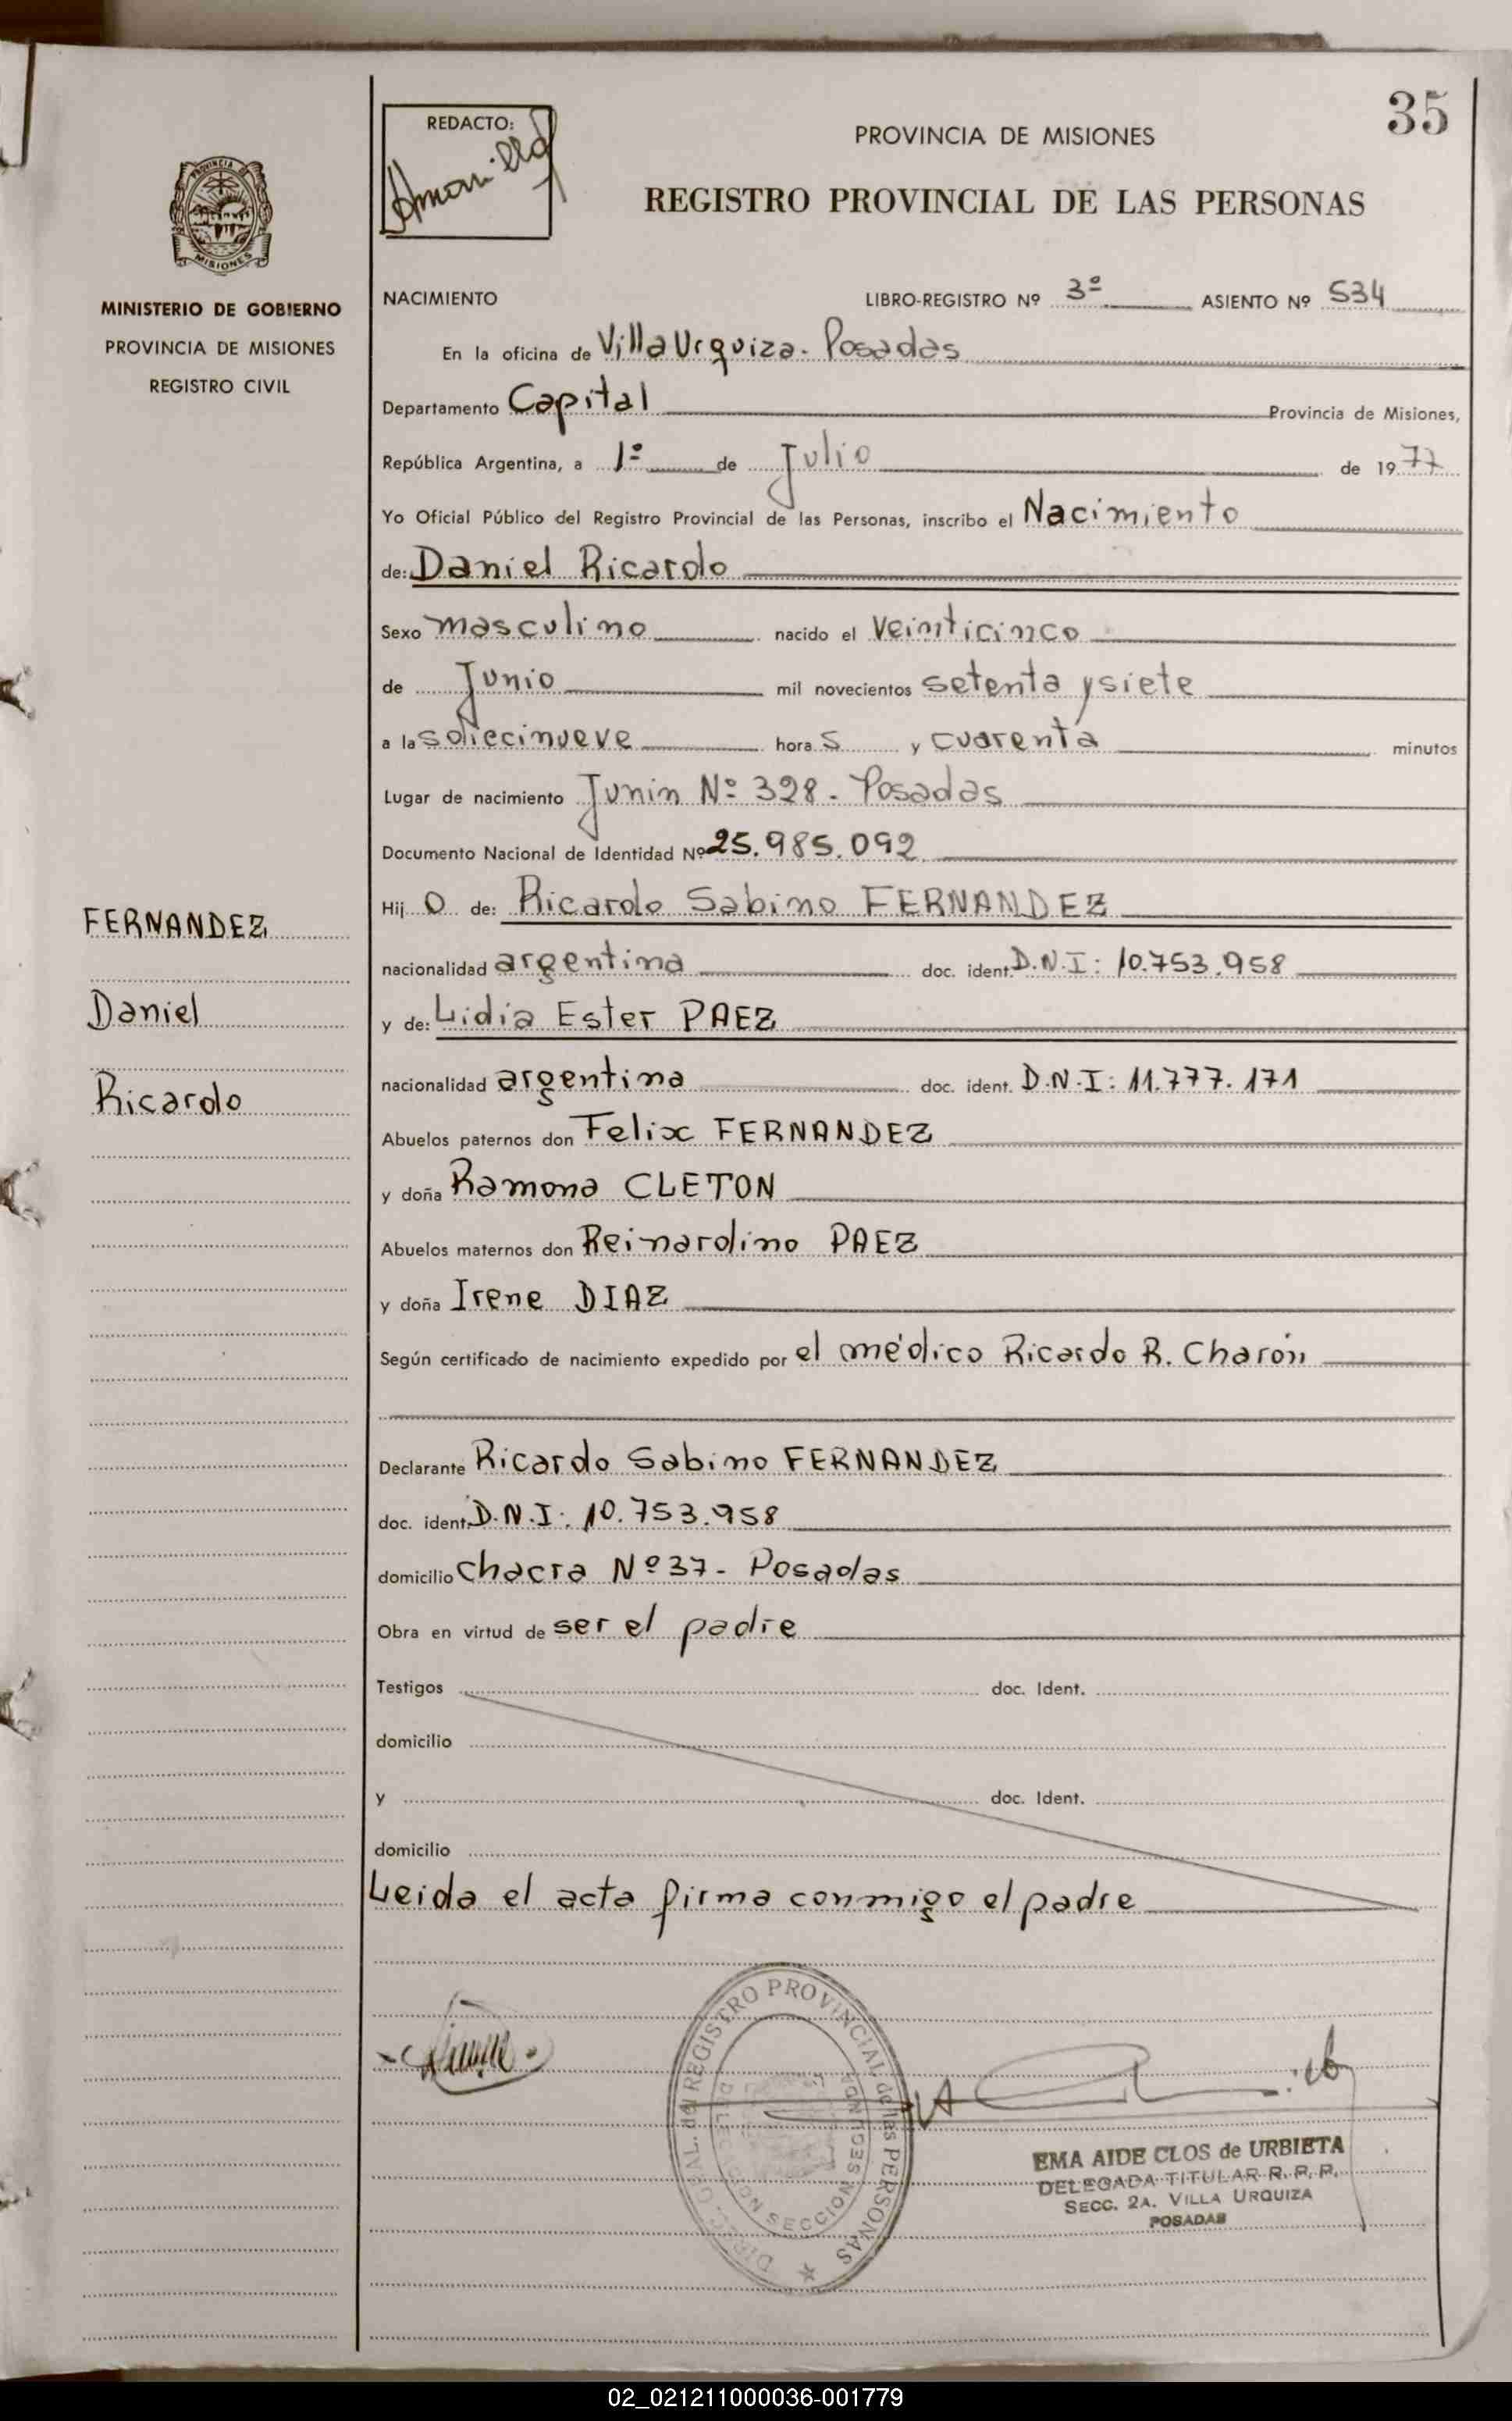 35
REDACTO:
PROVINCIA DE MISIONES
REGISTRO PROVINCIAL DE LAS PERSONAS
PROVINCIA DE
MISIONES
MINISTERIO DE GOBIERNO
PROVINCIA DE MISIONES
REGISTRO CIVIL
NACIMIENTO LIBRO-REGISTRO Nº 3º ASIENTO Nº 534
En la oficina de Villa Urquiza. Posadas
Departamento Capital Provincia de Misiones,
República Argentina, a 1º de Julio de 1977
Yo Oficial Público del Registro Provincial de las Personas, inscribo el Nacimiento
de: Daniel Ricardo
Sexo masculino nacido el veinticinco
de Junio mil novecientos setenta y siete
a las diecinueve horas y cuarenta minutos
Lugar de nacimiento Junin Nº 328 - Posadas
Documento Nacional de Identidad Nº 25.985.092
Hijo de: Ricardo Sabino FERNANDEZ
FERNANDEZ
nacionalidad argentina doc. ident. D.N.I: 10.753.958
Daniel
y de: Lidia Ester PAEZ
nacionalidad argentina doc. ident. D.N.I: 11.777.171
Ricardo
Abuelos paternos don Felix FERNANDEZ
y doña Ramona CLETON
Abuelos maternos don Reinardino PAEZ
y doña Irene DIAZ
Según certificado de nacimiento expedido por el médico Ricardo R. Charón
Declarante Ricardo Sabino FERNANDEZ
doc. ident. D.N.I: 10.753.958
domicilio Chacra Nº 37 - Posadas
Obra en virtud de ser el padre
Testigos doc. Ident.
domicilio
y doc. Ident.
domicilio
Leida el acta firma conmigo el padre
DIREC. GRAL. del REGISTRO PROVINCIAL de las PERSONAS
SECCION SEGUNDA
EMA AIDE CLOS de URBIETA
DELEGADA TITULAR R. P. P.
SECC. 2A. VILLA URQUIZA
POSADAS
02_021211000036-001779